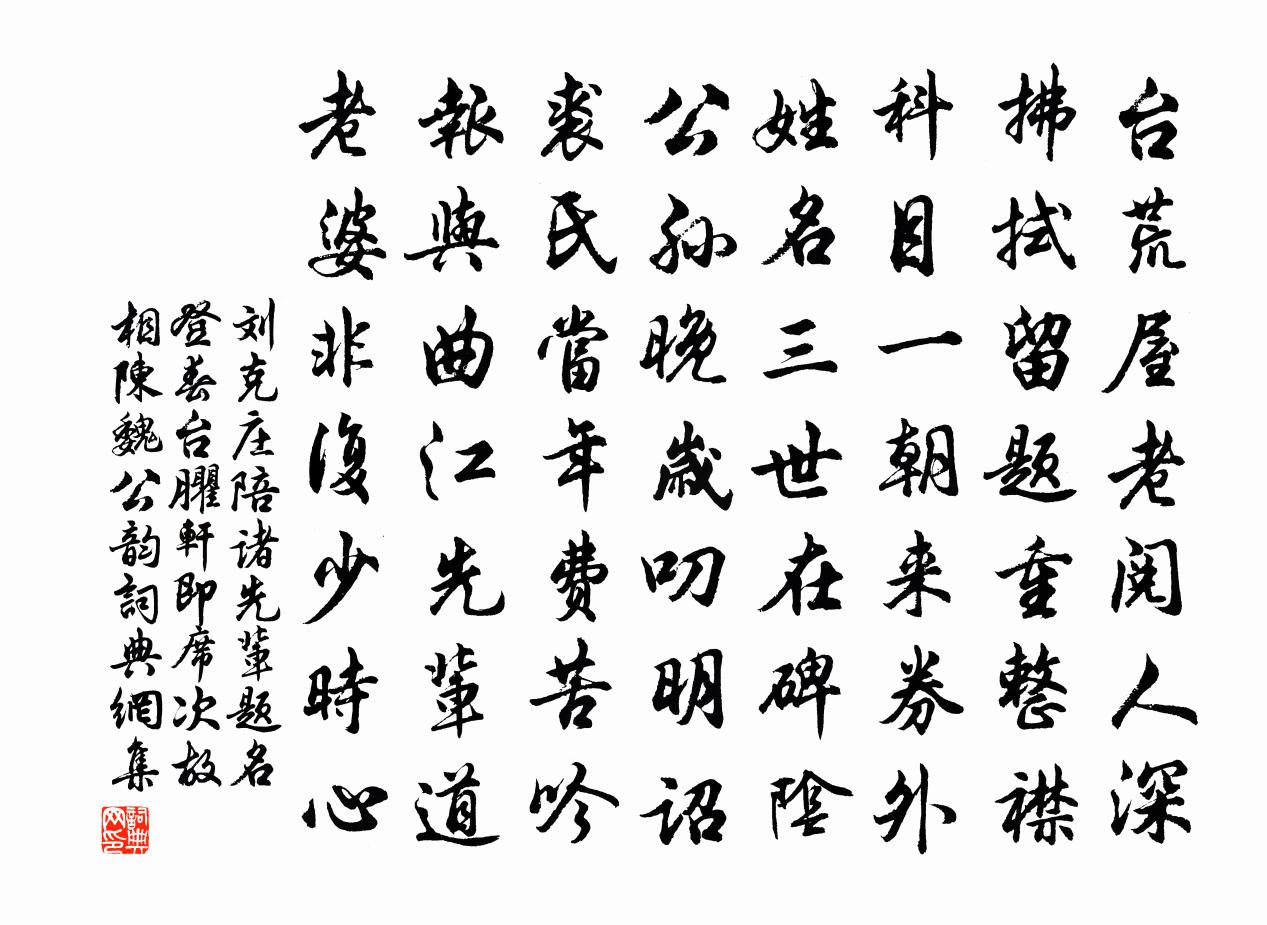 台荒屋老阅人深
拂拭留题重整襟
科目一朝来券外
姓名三世在碑陰
公孙晚歲叨明詔
裘氏當年费苦吟
報與曲江先輩道
老婆非復少時心
刘克庄陪诸先輩题名
登春台臞軒即席次故
相陳魏公韵詞典網集
詞典网印